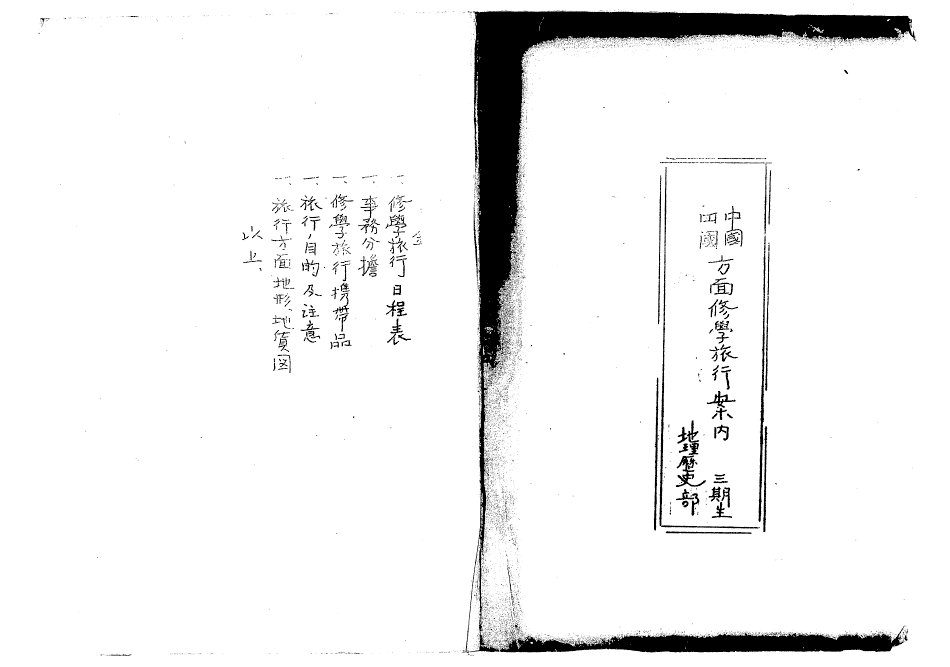 中國
四國
方面修學旅行案内 三期生
地理歴史部
一、修學旅行日程表
一、事務分擔
一、修學旅行携帶品
一、旅行ノ目的及注意
一、旅行方面地形、地質図
以上、